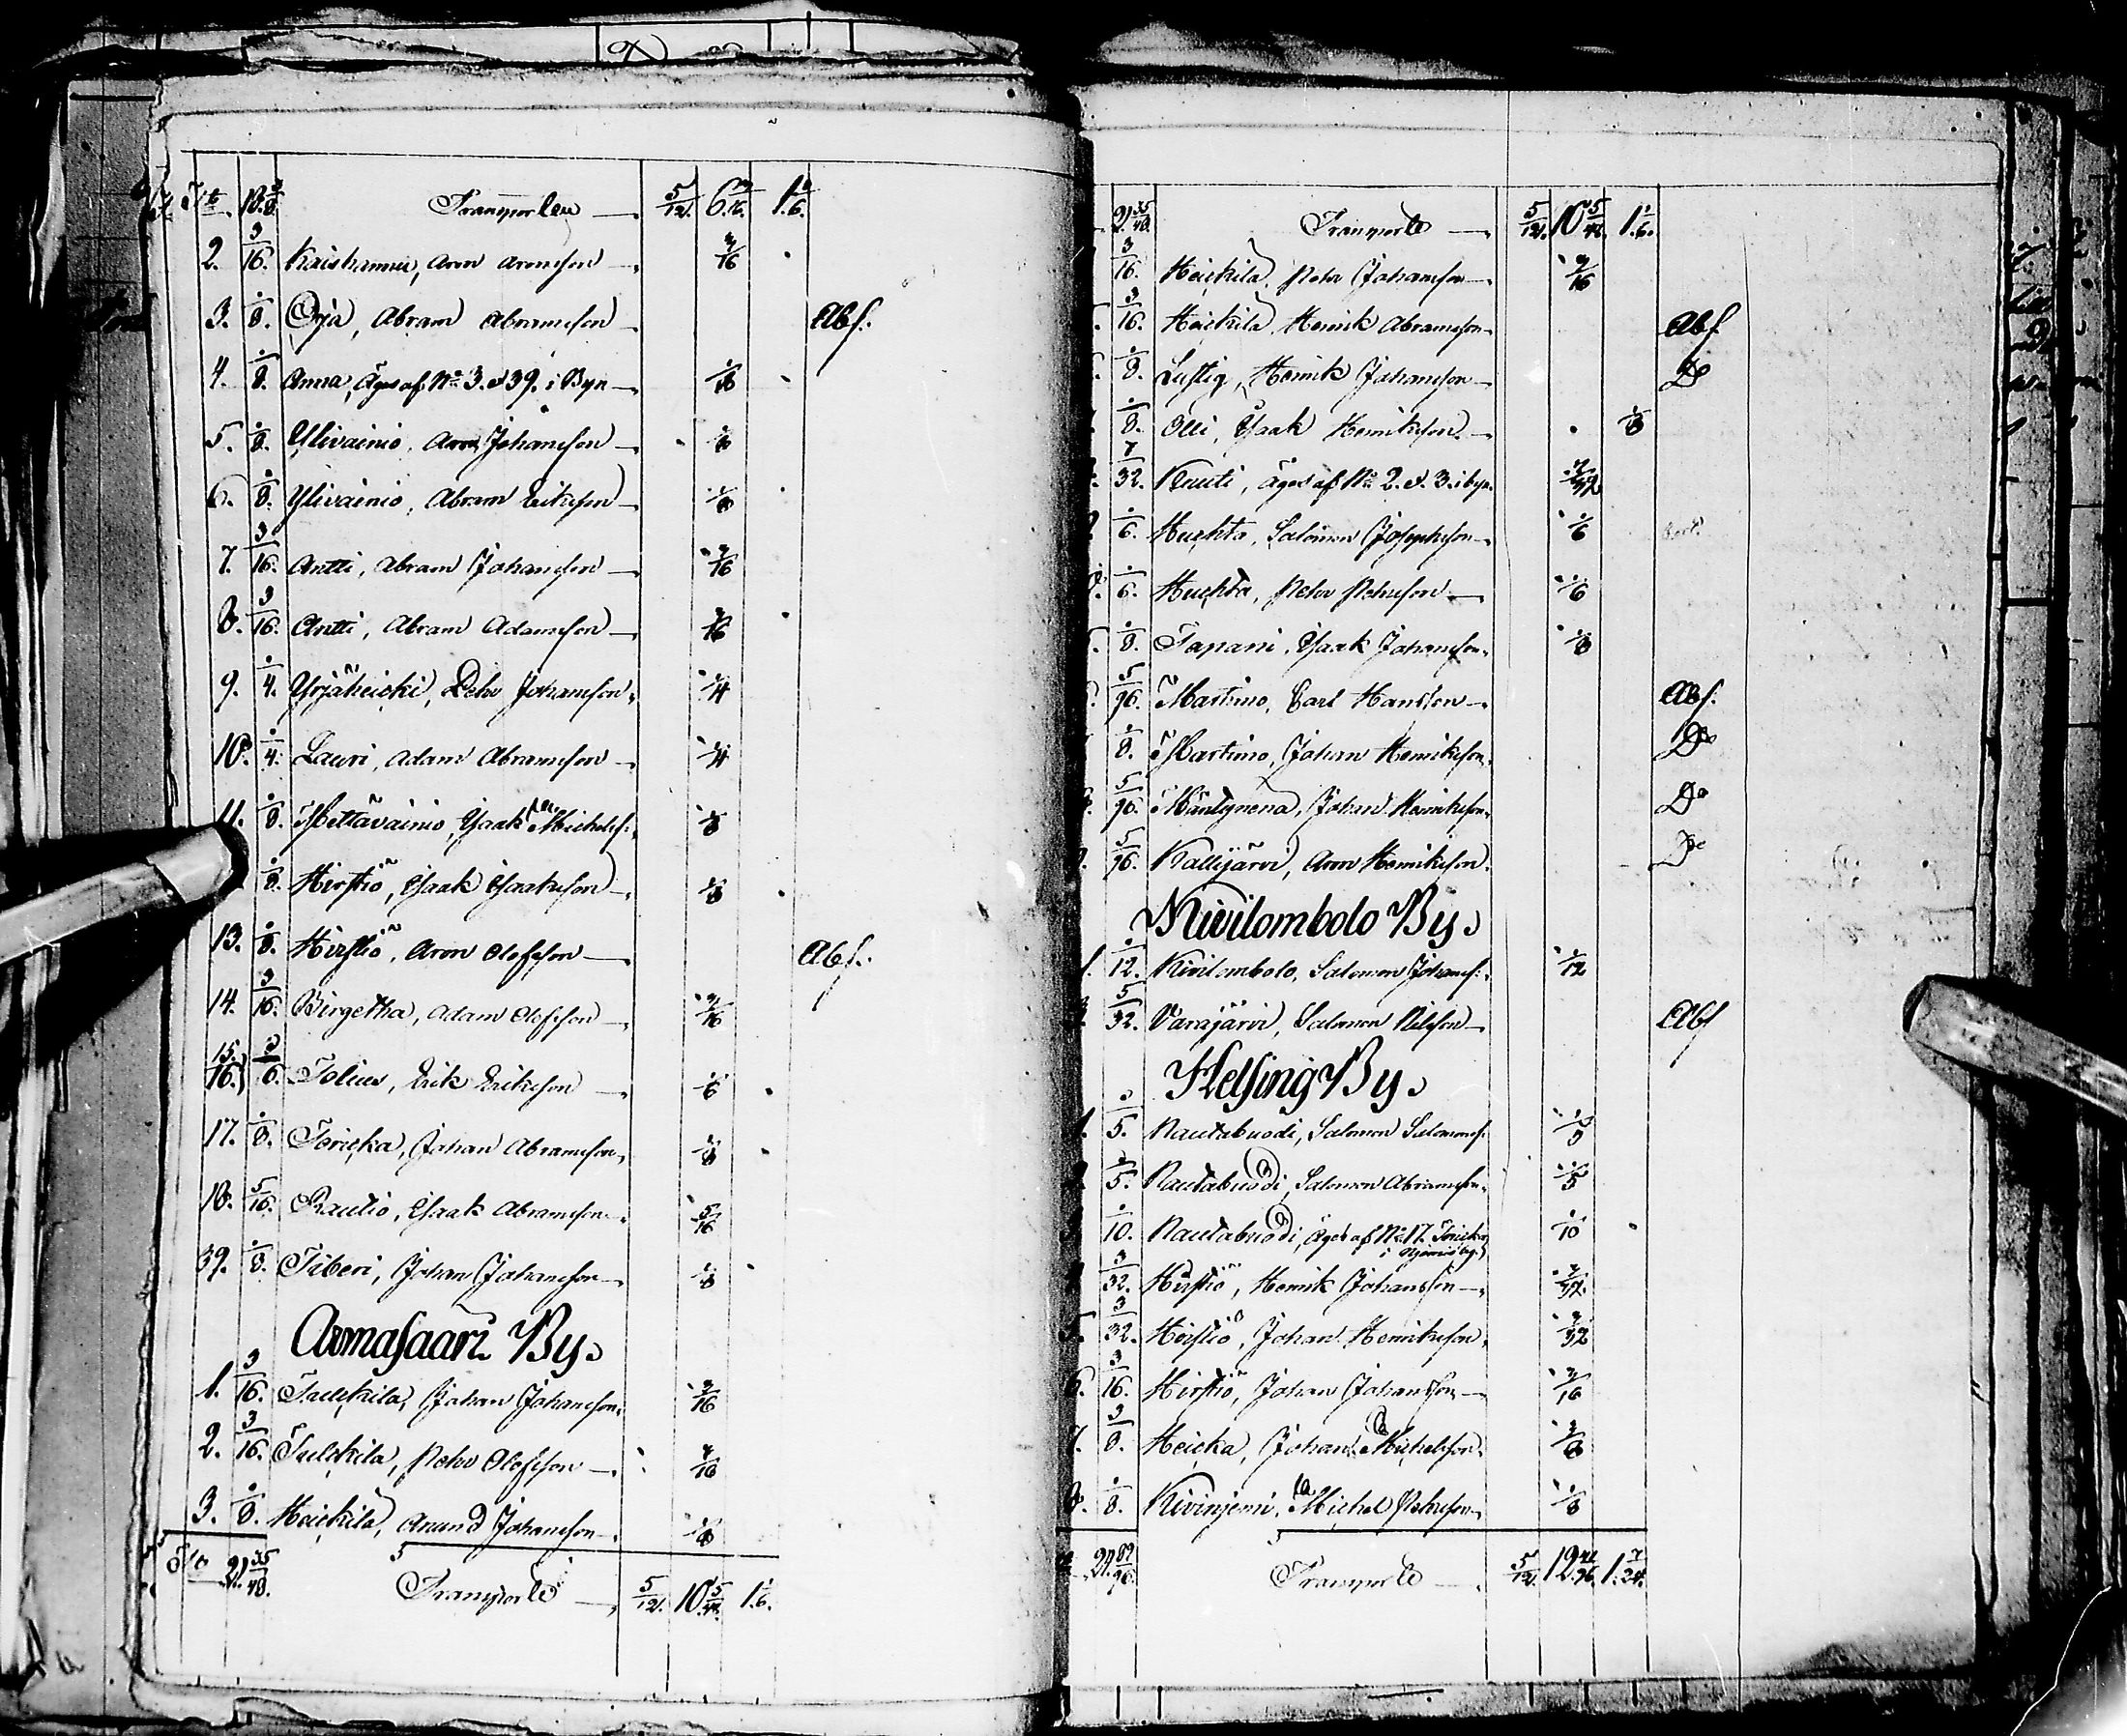 Transporteu — 5/12. 6 1. 1/6.
2. 3/16. Kaishannu, Aron Aronsson — 3/16
3. 1/8. Orja, Abram Abramsson — Abs.
4. 1/8. Anna, Äges af No 3. & 39. i Byn — 1/8
5. 1/8. Ylivainio, Aron Johansson — 1/8
6. 1/8. Ylivainio, Abram Eriksson — 1/8
7. 3/16. Antti, Abram Johansson — 3/16
8. 3/16. Antti, Abram Adamsson — 3/16
9. 1/4. Yrjäheicki, Pehr Johansson — 1/4
10. 1/4. Lauri, Adam Abramsson — 1/4
11. 1/8. Mettävainio, Isaak Michelss: 1/8
1/8. Hirstiö, Isaak Isaaksson — 1/8
13. 1/8. Hirstiö, Aron Olofsson — Abs.
14. 3/16. Birgetha, Adam Olofsson — 3/16
15. 16.) 1/6. Tolius, Erik Eriksson — 1/6
17. 1/8. Joricka, Johan Abramsson, 1/8
18. 5/16. Rautio, Isaak Abramsson — 5/16
39. 1/8. Fiberi, Johan Johansson — 1/8
Armasaari By.
1. 3/16. Taulckila, Johan Johansson, 3/16
2. 3/16. Taulckila, Pehr Olofsson — 3/16
3. 1/8. Heickilä, Anund Johansson — 1/8
21 35/48. Transporte — 5/12. 10 5/48. 1 1/6.
21 35/48. Transporte — 5/12. 10 5/48. 1 1/6.
3/16. Heickilä, Pehr Johansson — 3/16
3/16. Heickilä, Henrik Abramsson — Abs.
1/8. Lustig, Henrik Johansson — Do
1/8. Olli, Isaak Henriksson — 1/8
7/32. Knuuti, Äges af No 2. & 3. i byn. 7/32
1/6. Huchta, Salomon Josephsson — 1/6
1/6. Huchta, Pehr Pehrsson — 1/6
1/8. Tapani, Isaak Johansson, 1/8
5/96. Martimo, Carl Hansson — Abs.
1/8. Martimo, Johan Henriksson, Do
5/96. Mäntynenä, Johan Henriksson, Do
5/96. Kallijärvi, Aron Henriksson. Do
Kivilombolo By.
1. 1/12. Kivilombolo, Salomon Johanss: 1/12
5/32. Varajärvi, Salomon Nilsson — Abs
Helsing By.
1. 1/5. Rautabuodi, Salomon Salomonss: 1/5
1/5. Rautabuodi, Salomon Abramsson, 1/5
1/10. Rautabuodi, Äges af No 17. Joricka 1/10
3/32. Hirstiö, Henrik Johansson — 3/32
5. 3/32. Hirstiö, Johan Henriksson, 3/32
6. 3/16. Hirstiö, Johan Johansson — 3/16
7. 3/8. Heicka, Johan Michelsson. 3/8
8. 1/8. Kivinjemi, Michel Pehrsson — 1/8
24 89/96. Transporte — 5/12. 12 1 7/24.